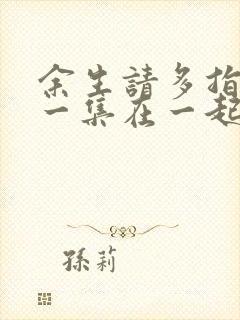 余生請多指
一集在一起
孫莉